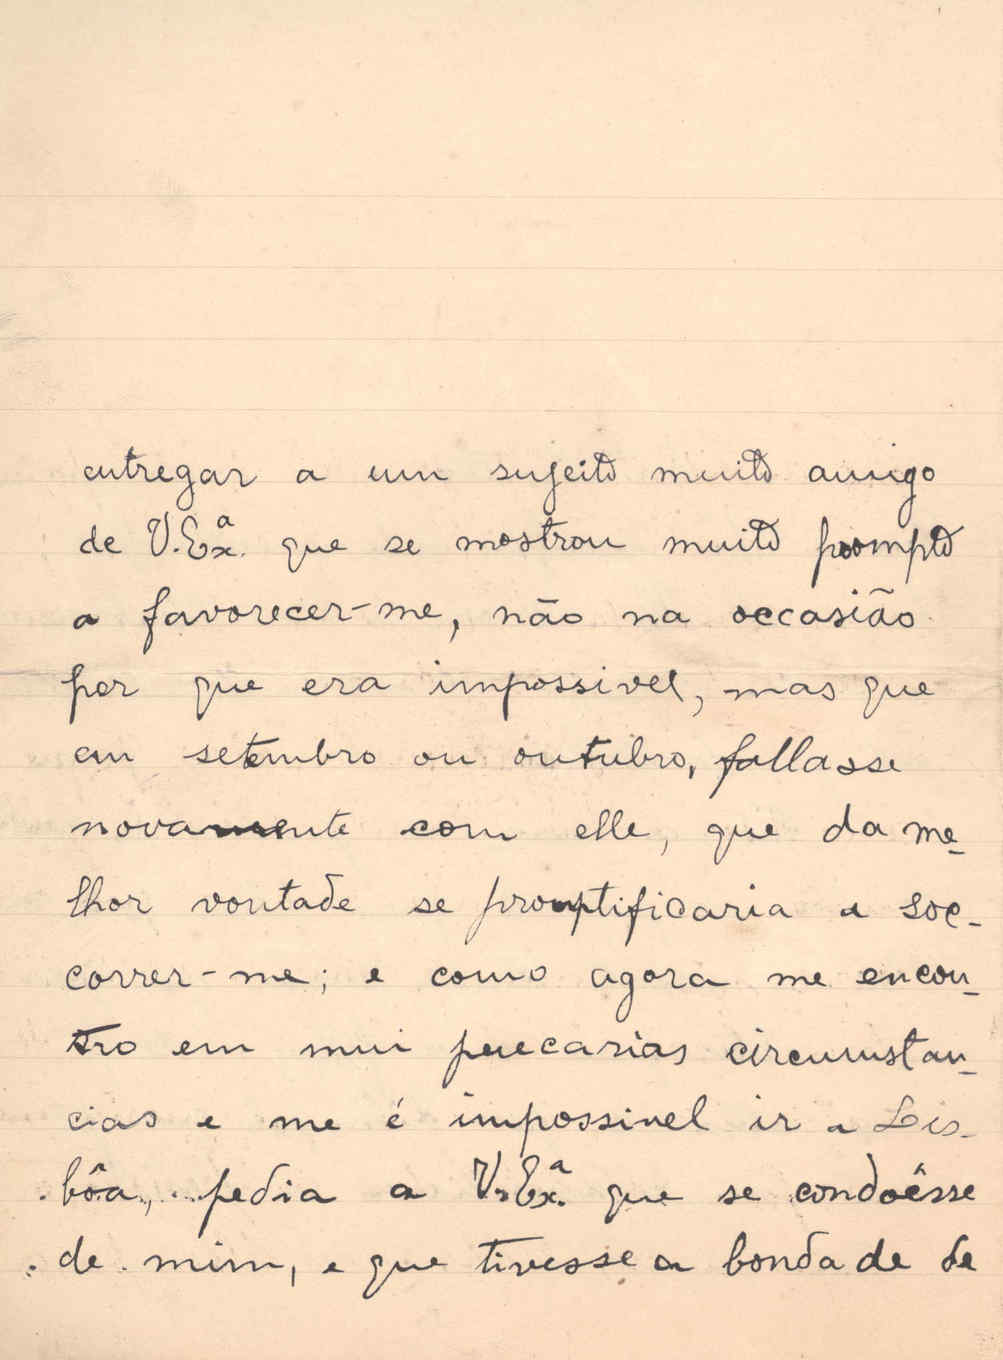 entregar a um sujeito muito amigo
de V. Exª. que se mostrou muito prompto
a favorecer-me, não na occasião
por que era impossivel, mas que
em setembro ou outubro, fallasse
novamente com elle, que da me-
lhor vontade se promptificaria a soc-
correr-me; e como agora me encon-
tro em mui precarias circumstan-
cias e me é impossivel ir a Lis-
bôa, pedia a V. Exª. que se condoêsse
de mim, e que tivesse a bondade de